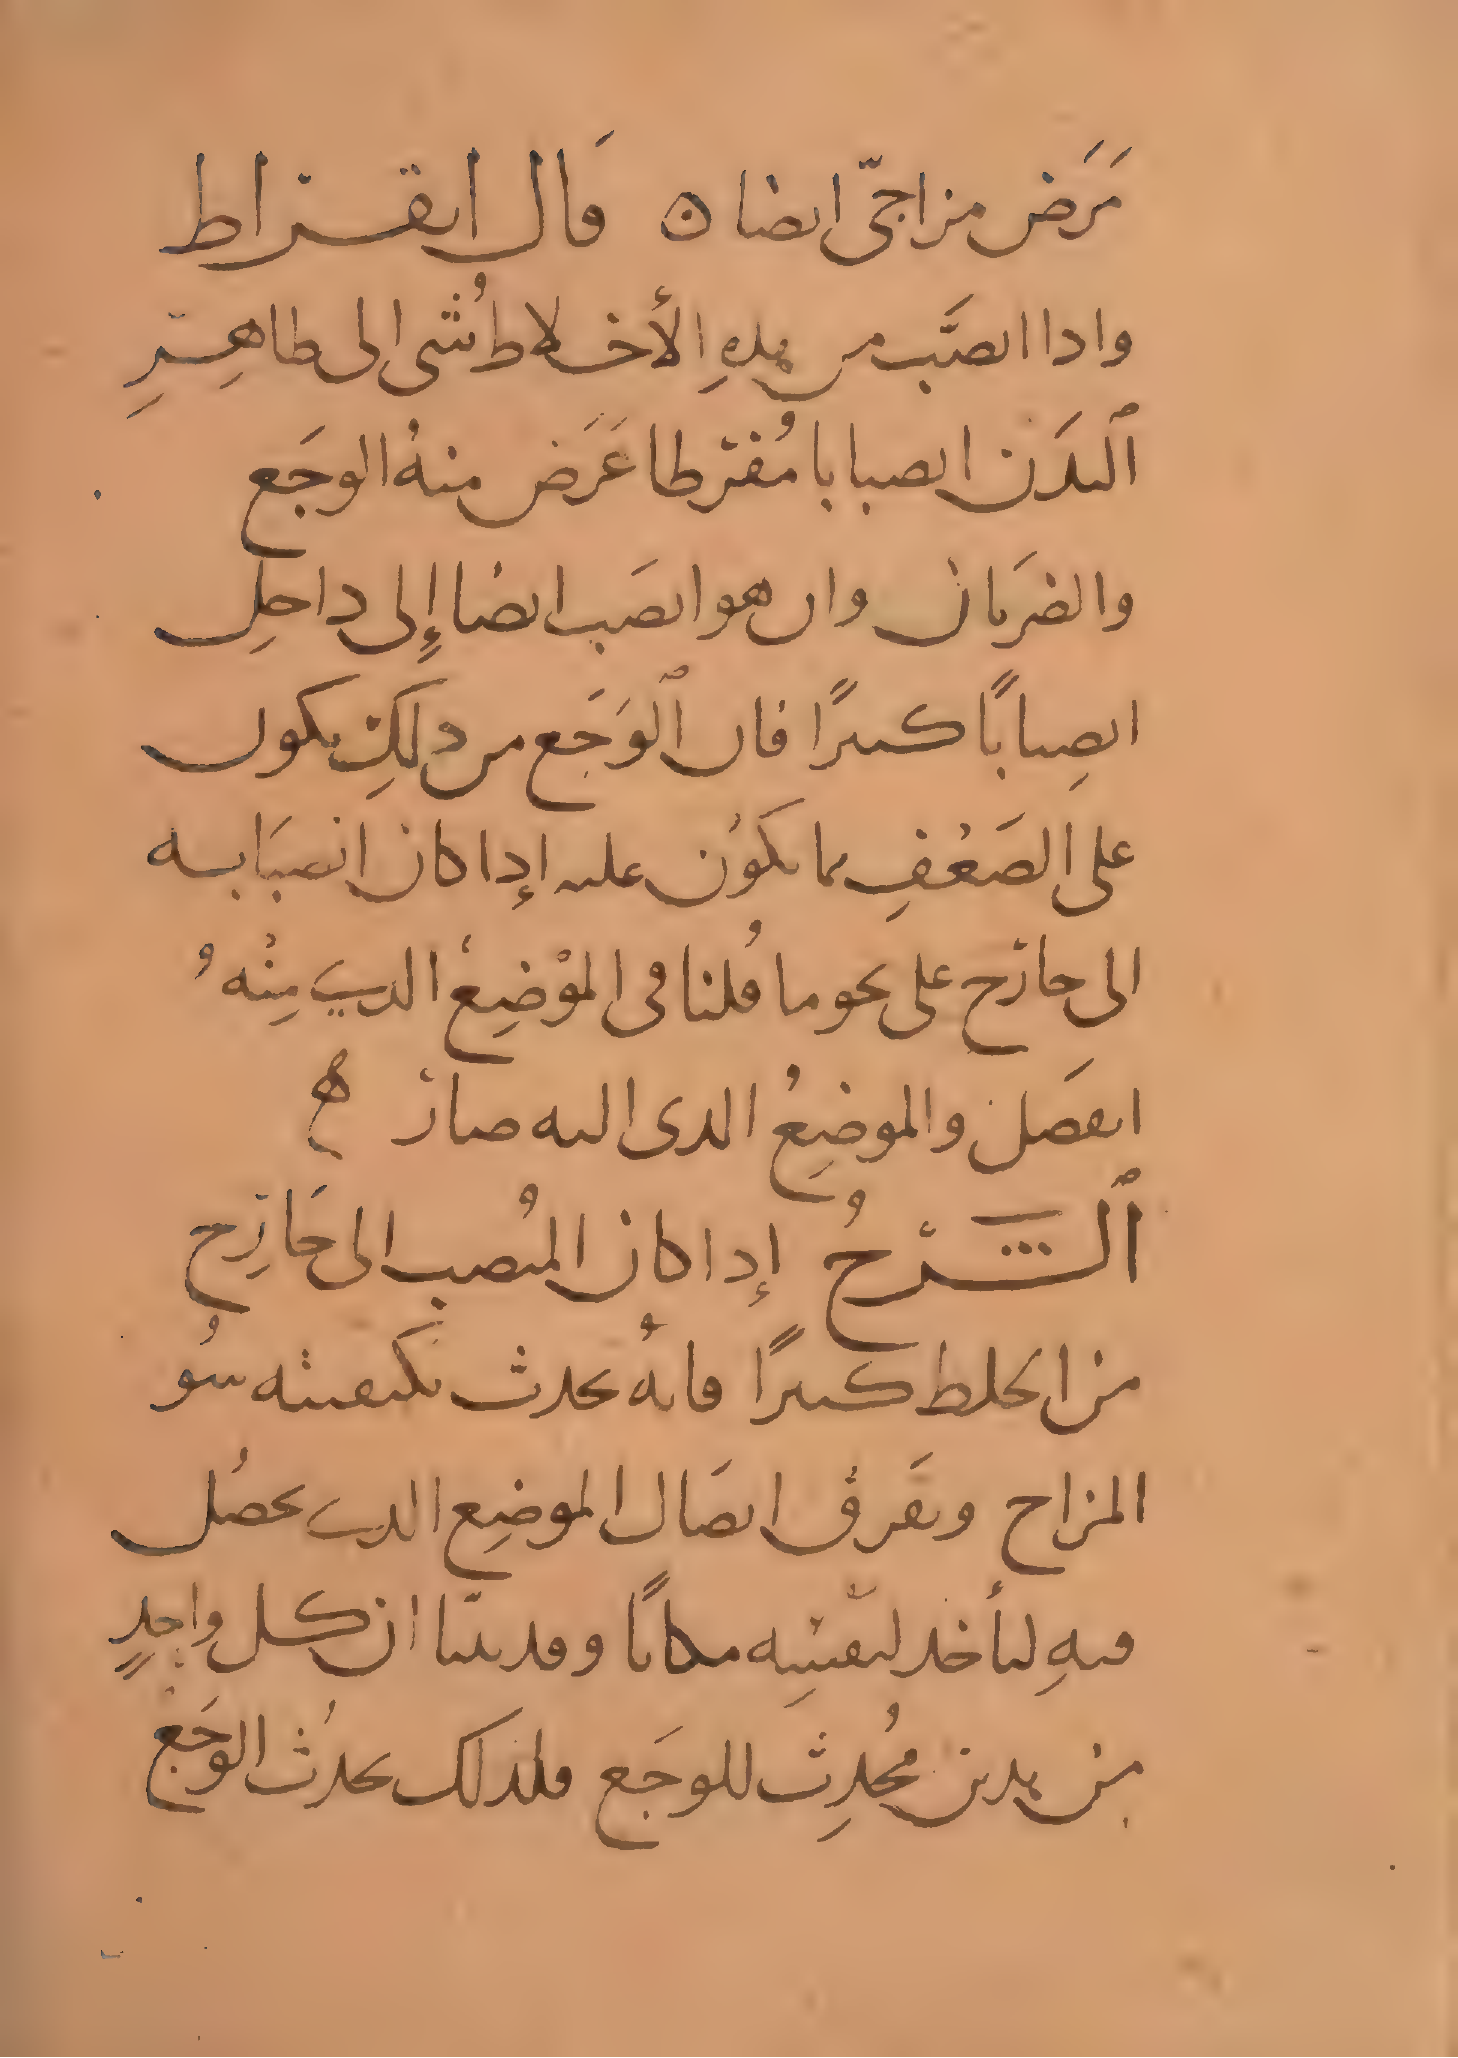 مَرَض مزاجىّ ايضا ن قَال ابقراط
واذا انصَّب من هذهِ الأخلاط شُى الى طاهِرِ
ٱلبدَن انصبابا مُفرطا عَرَض منهُ الوجَع
والضرَبان وان هو انصَب ايضا إلى داخلِ
انصِبابًا كثيرًا فان ٱلوَجَع من ذلكِ يكون
على الصَعُفِ مما يكوُن عليه إذا كان انصبَابه
الى خارج على نحو ما قُلنا فى الموْضِع الذي مِنْهُ
انفصَل والموضِعُ الذى اليه صار ه
ٱلشرحُ إذا كان المنُصب الى خَارِج
من الخلط كثيرًا فانهُ يحدث بكيفيته سُو
المزاج وتفَرق اتصَال الموضِع الذي يحصُل
فيهِ ليأخذ لنفسِه مكانًا وقد بيّنا ان كل واحِدٍ
من هذين مُحُدِث للوجَع فلذلك يحدُث الوجَع